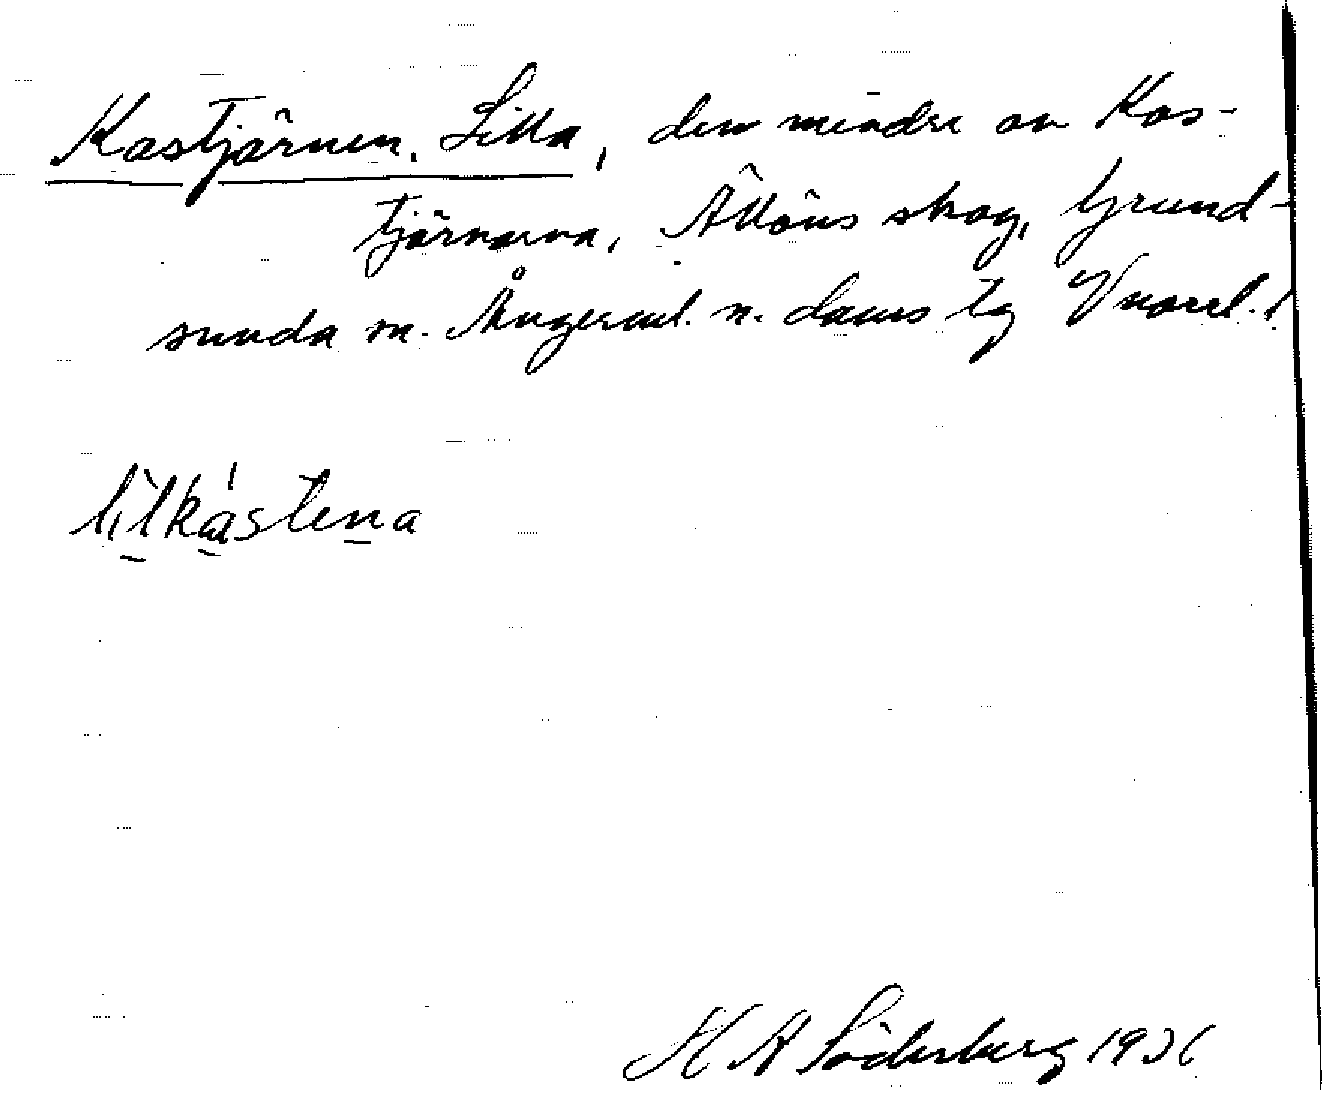 Kastjärnen, Lilla, den mindre av Kas-
tjärnarna, Ällöns skog, Grund-
sunda sn. Ångerml. n. läns
lilkástena
H A Söderberg 1936